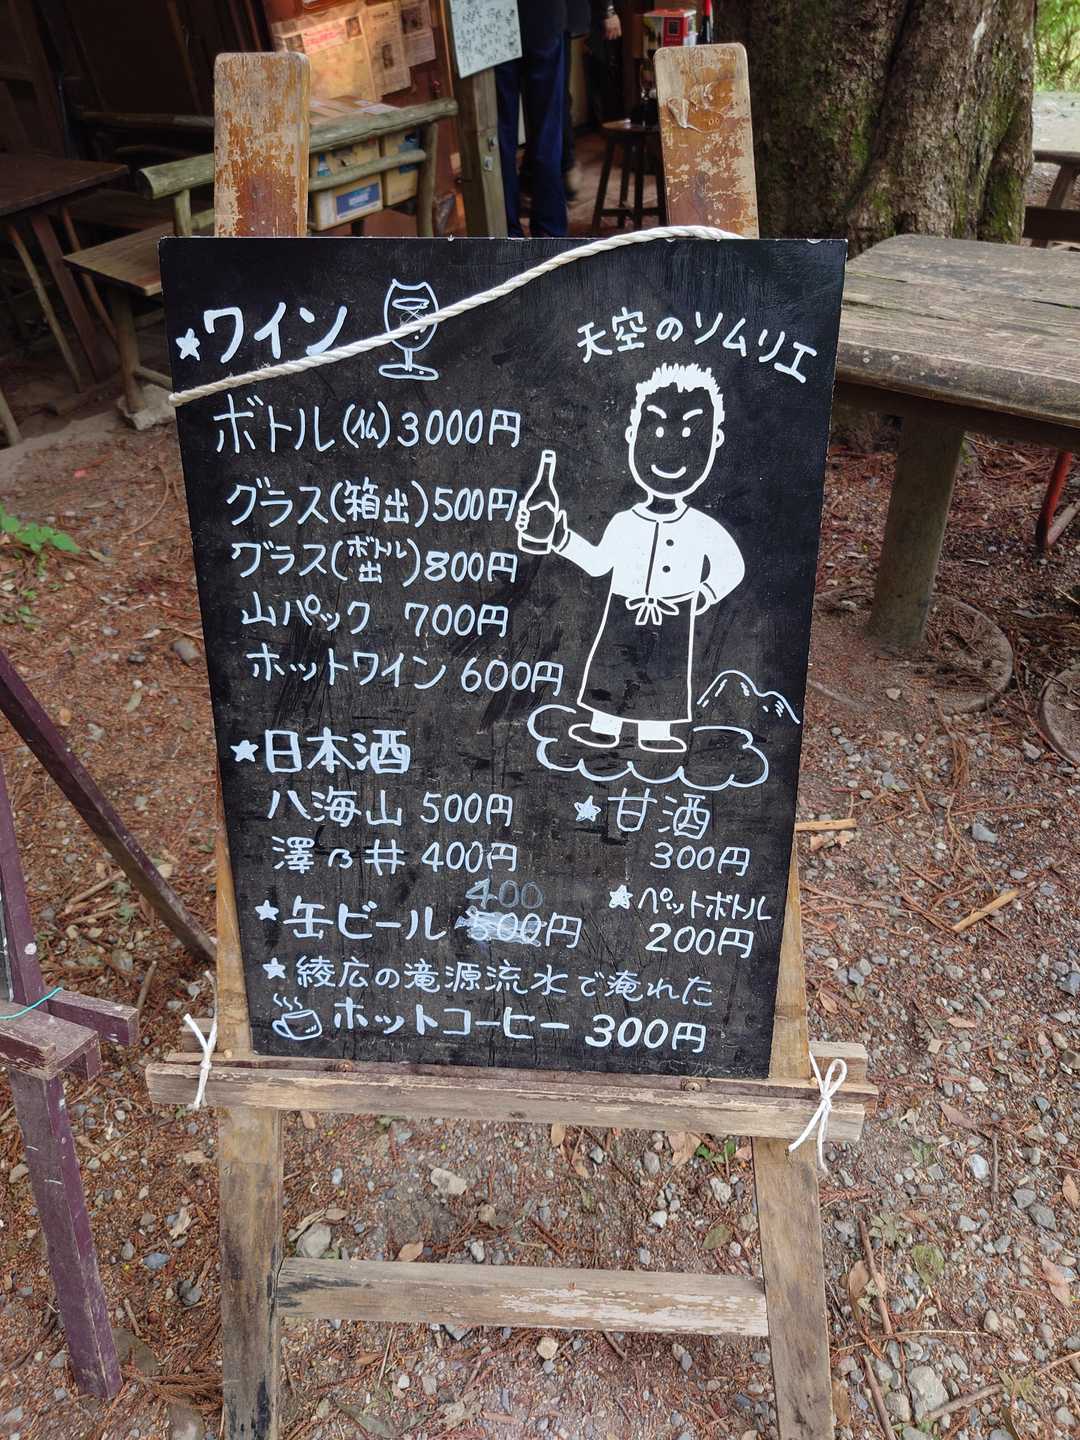 ★ワイン
天空のソムリエ
ボトル(仏)3000円
グラス(箱出)500円
グラス(ボトル出)800円
山パック 700円
ホットワイン 600円
★日本酒
八海山 500円
澤乃井 400円
★甘酒
300円
★ペットボトル
200円
400
★缶ビール 500円
★綾広の滝源流水で淹れた
ホットコーヒー 300円